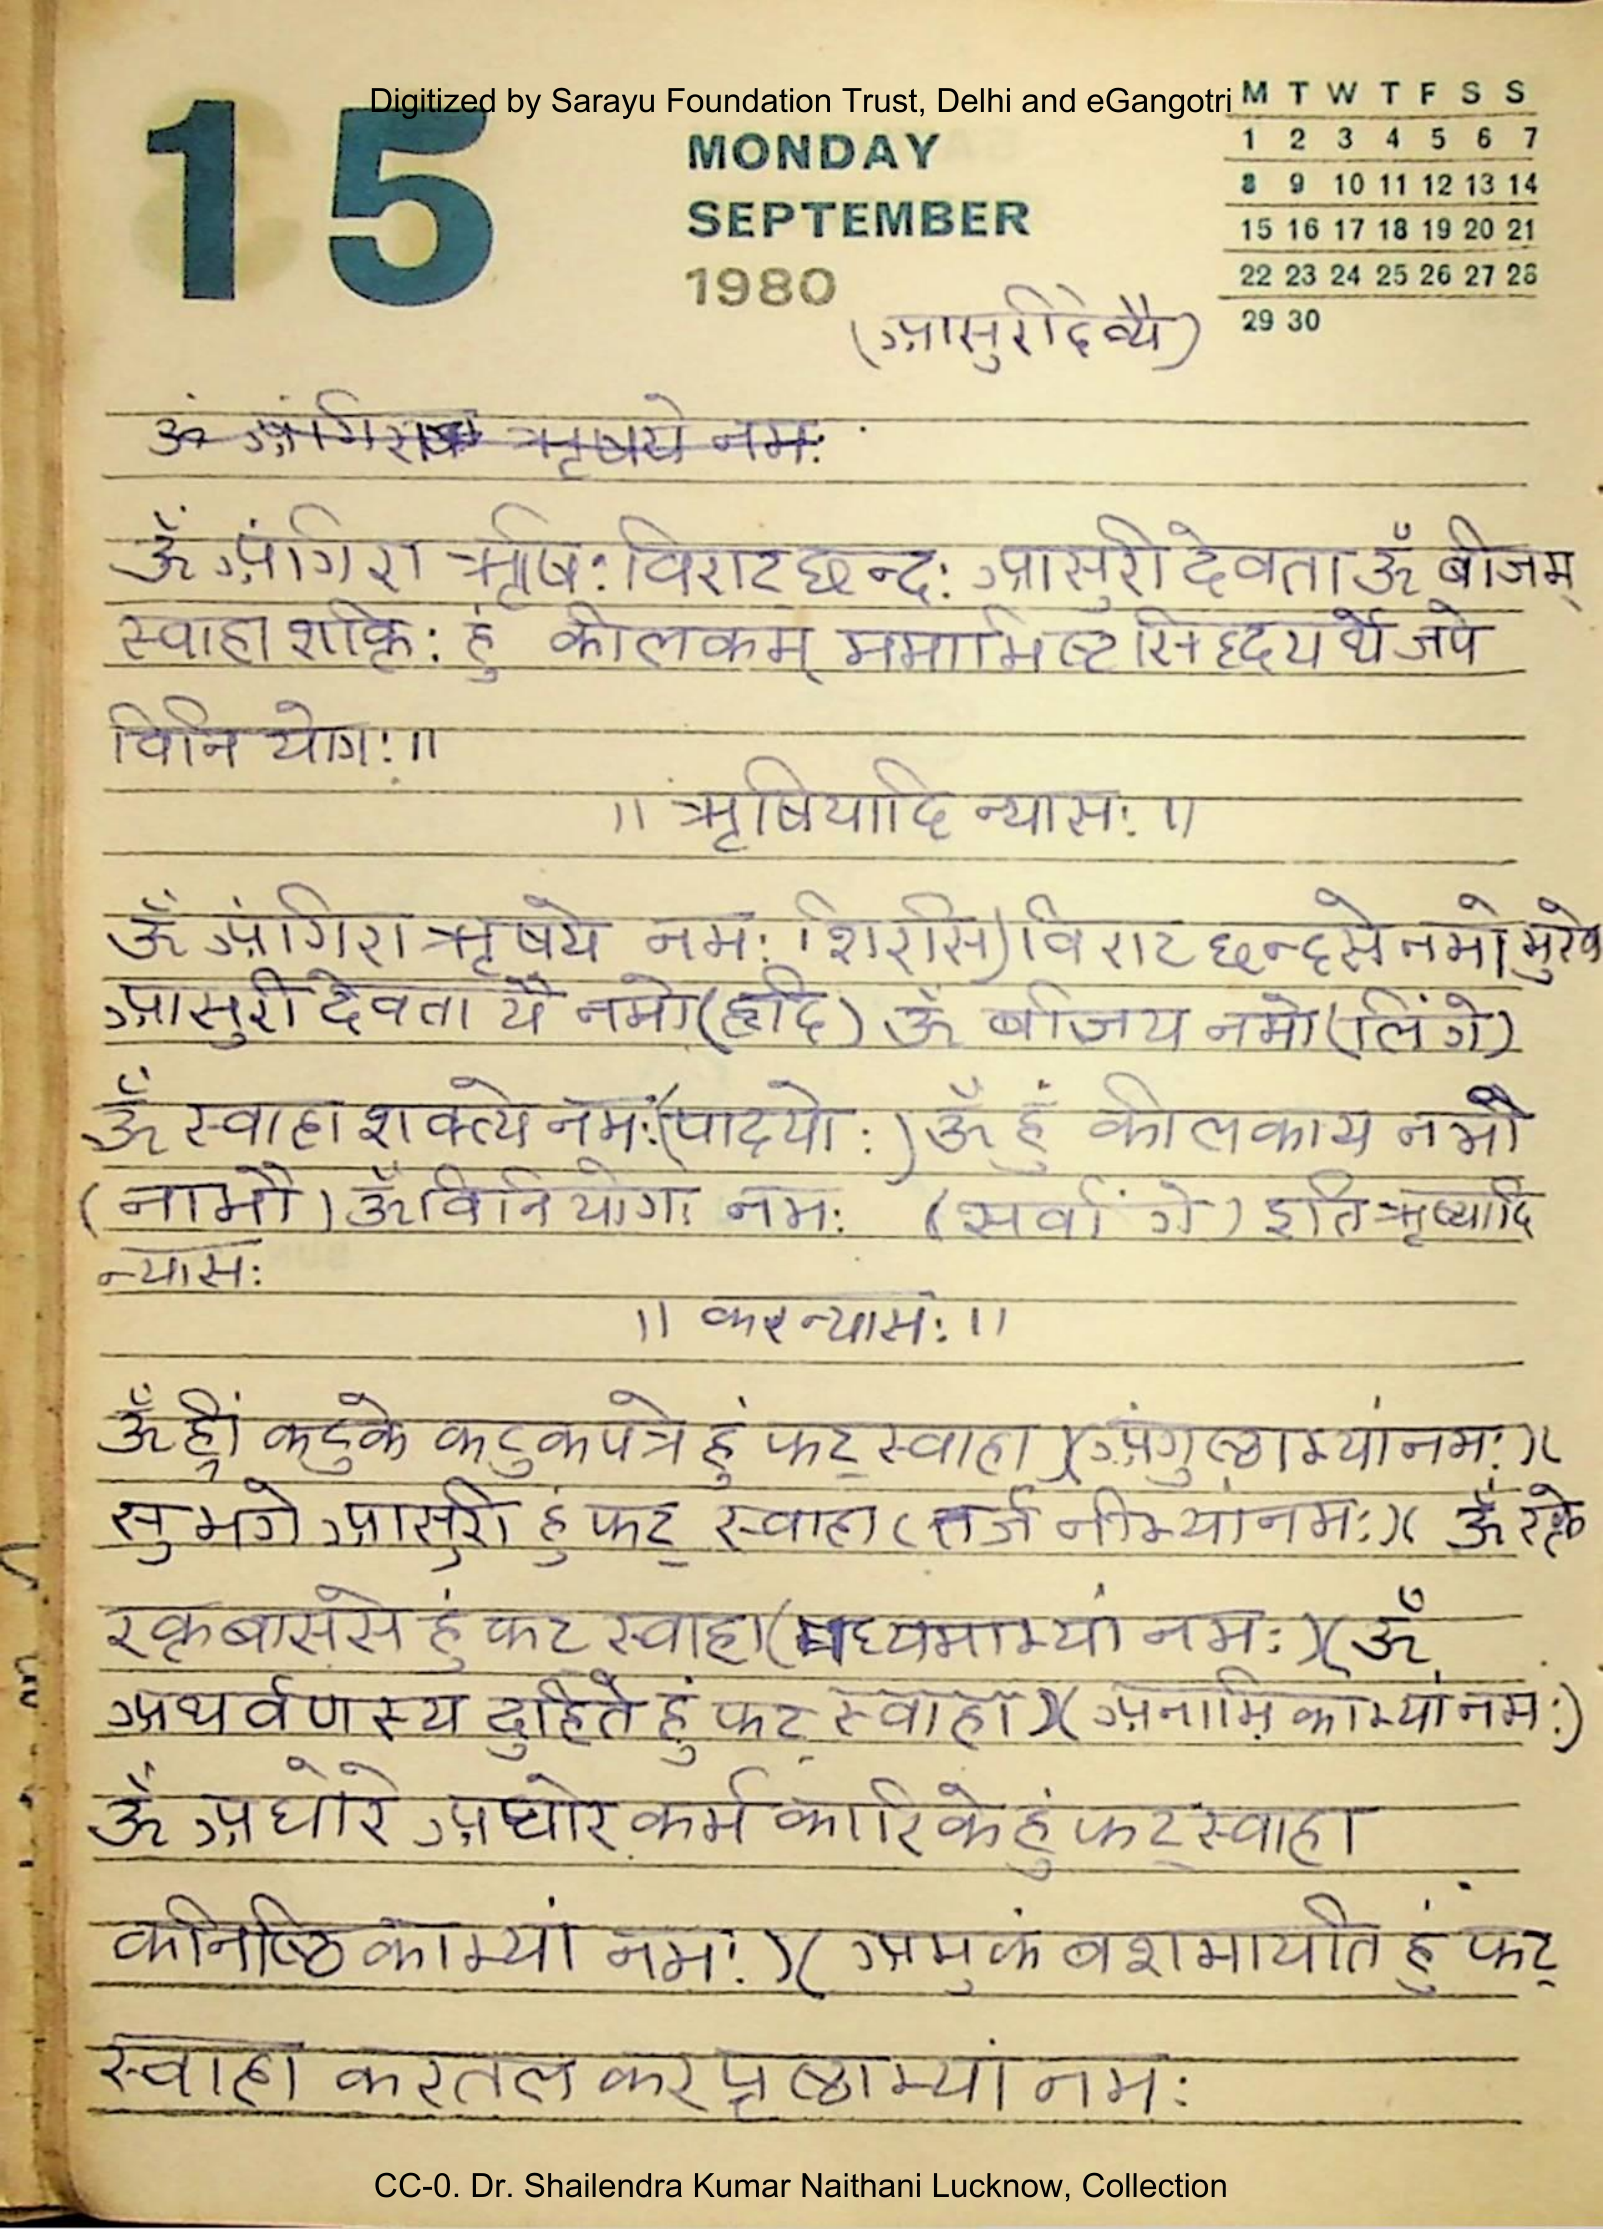 Digitized by Sarayu Foundation Trust, Delhi and eGangotri
15
MONDAY
SEPTEMBER
1980
M T W T F S S
1 2 3 4 5 6 7
8 9 10 11 12 13 14
15 16 17 18 19 20 21
22 23 24 25 26 27 28
29 30
(आसुरीदेव्यै)
ॐ अंगिरा ऋषये नमः
ॐ अंगिरा ऋषि: विराट छन्द: आसुरी देवता ॐ बीजम्
स्वाहा शक्ति: हुं कीलकम् ममाभिष्ट सिद्धयर्थे जपे
विनियोग:॥
॥ ऋषियादि न्यास: ॥
ॐ अंगिरा ऋषये नम: (शिरसि) विराट छन्दसे नमो मुखे
आसुरी देवतायै नमो (हृदि) ॐ बीजय नमो (लिंगे)
ॐ स्वाहा शक्त्ये नम: (पादयो:) ॐ हुं कीलकाय नमो
(नाभौ) ॐ विनियोगा नम: (सर्वांगे) इति ऋष्यादि
न्यास:
॥ करन्यास: ॥
ॐ ह्रीं कटुके कटुकपत्रे हुं फट् स्वाहा )(अंगुष्ठाभ्यां नम:)(
सुभगे आसुरी हुं फट् स्वाहा (तर्जनीभ्यां नम:)( ॐ रक्ते
रक्तबाससे हुं फट स्वाहा (मध्यमाभ्यां नम:)(ॐ
अथर्वणस्य दुहिते हुं फट् स्वाहा )(अनामिकाभ्यां नम:)
ॐ अघोरे अघोर कर्म कारिके हुं फट् स्वाहा
कनिष्ठिकाभ्यां नम:)( अमुकं बशमायति हुं फट्
स्वाहा करतल करपृष्ठाभ्यां नम:
CC-0. Dr. Shailendra Kumar Naithani Lucknow, Collection